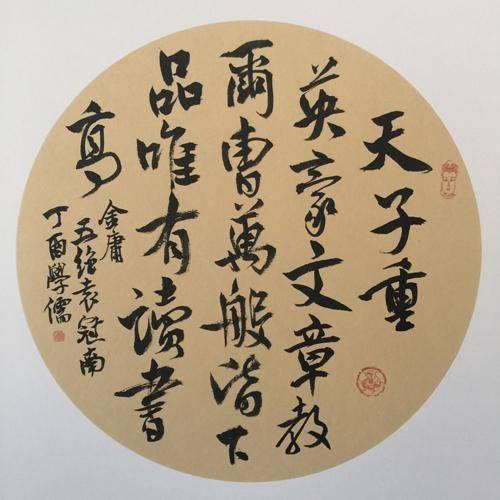 天子重
英豪文章教
爾曹萬般皆下
品唯有讀書
高
金庸
五絕袁冠南
丁酉學儒